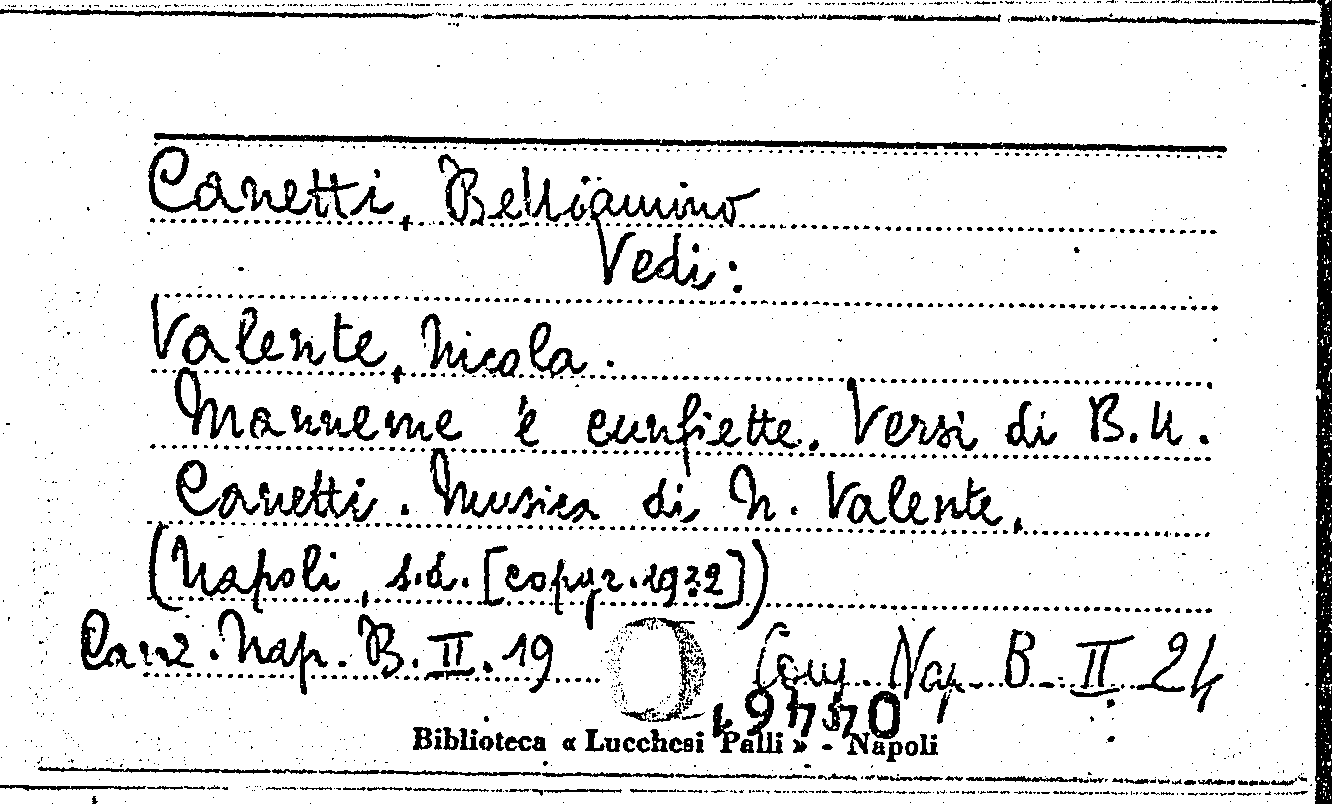 Canetti, Belliamino
Vedi:
Valente, Nicola.
Manneme 'e cunfiette. Versi di B.U.
Canetti. Musica di N. Valente.
(Napoli, s.d. [copyr. 1932])
Canz. Nap. B. II. 19
Canz. Nap. B. II 24
04461
Biblioteca « Lucchesi Palli » - Napoli